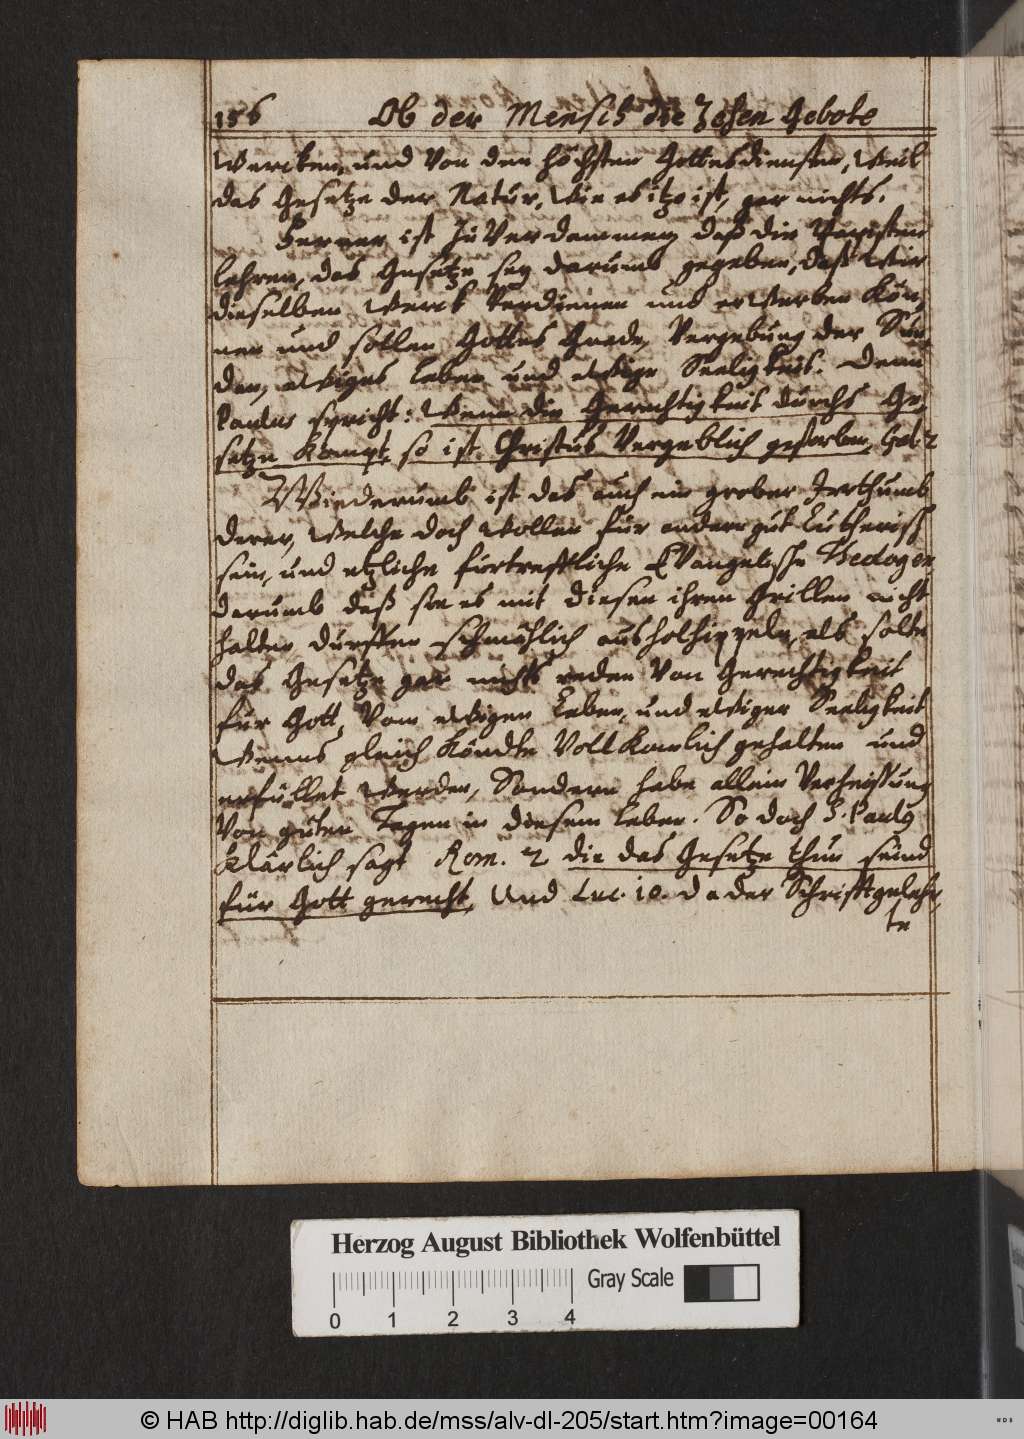 156 Ob der Mensch die Zehen Gebote
Wercken, und Von den höchsten Gottesdiensten, Weil
das Gesetze der Natur, Wie es itzo ist, gar nichts.
Ferner ist zu Verdammen, daß die Papisten
lehren, das Gesetze sey darumb gegeben, daß Wir
dieselben Werck Verdienen und erWerben Kön,
nen und sollen Gottes Gnade, Vergebung der Sün,
den, eWiges Leben und eWige Seeligkeit. Denn
Paulus spricht: Wenn die Gerechtigkeit durchs Ge,
setze Kompt, so ist Christus Vergeblich gestorben, Gal. 2
Wiederumb ist das auch ein grober Irrthumb
derer, Welche doch Wollen für andern gut Lutherisch
sein, und etzliche fürtreffliche EVangelische Theologen
darumb daß sie es mit diesen ihren Grillen nicht
halten dürffen schmählich ausholhippeln, als solte
das Gesetze gar nichts reden Von Gerechtigkeit
für Gott, Vom eWigen Leben, und eWiger Seeligkeit
Wenns gleich Köndte VollKomlich gehalten und
erfüllet Werden, Sondern habe allein Verheissung
Von guten Tagen in diesem Leben. So doch S. Paulus
Klärlich sagt Rom. 2 die das Gesetze thun seind
für Gott gerecht, Und Luc. 10. da der Schrifftgelehr,
te
Herzog August Bibliothek Wolfenbüttel
Gray Scale
0 1 2 3 4
© HAB http://diglib.hab.de/mss/alv-dl-205/start.htm?image=00164